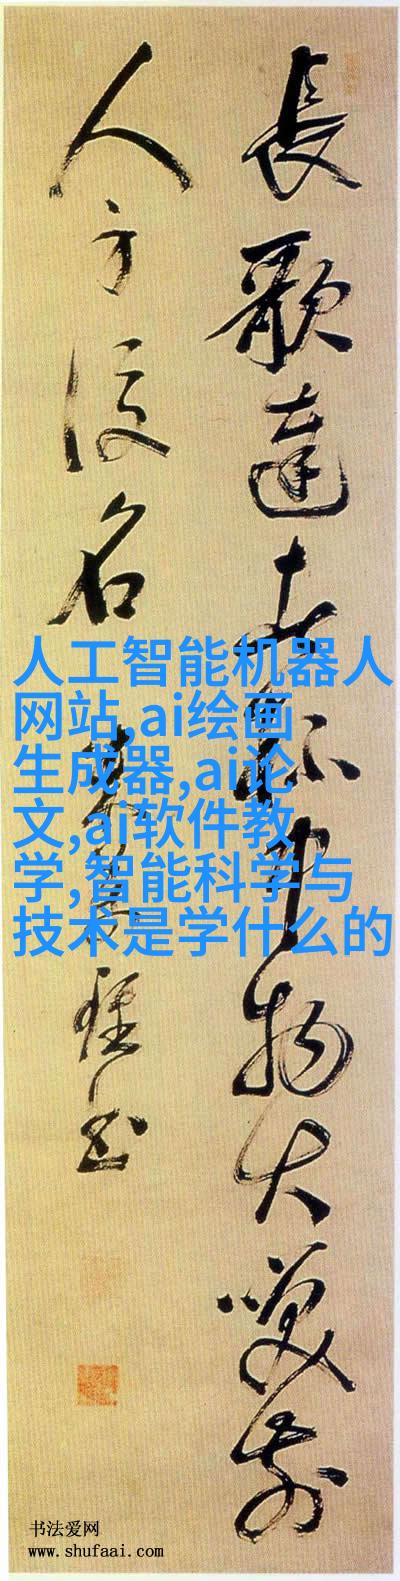 長歌達者杯中物大笑前
人身後名
人工智能机器人
网站,ai绘画
生成器,ai论
文,ai软件教
学,智能科学与
技术是学什么的
书法爱网
www.shufaai.com